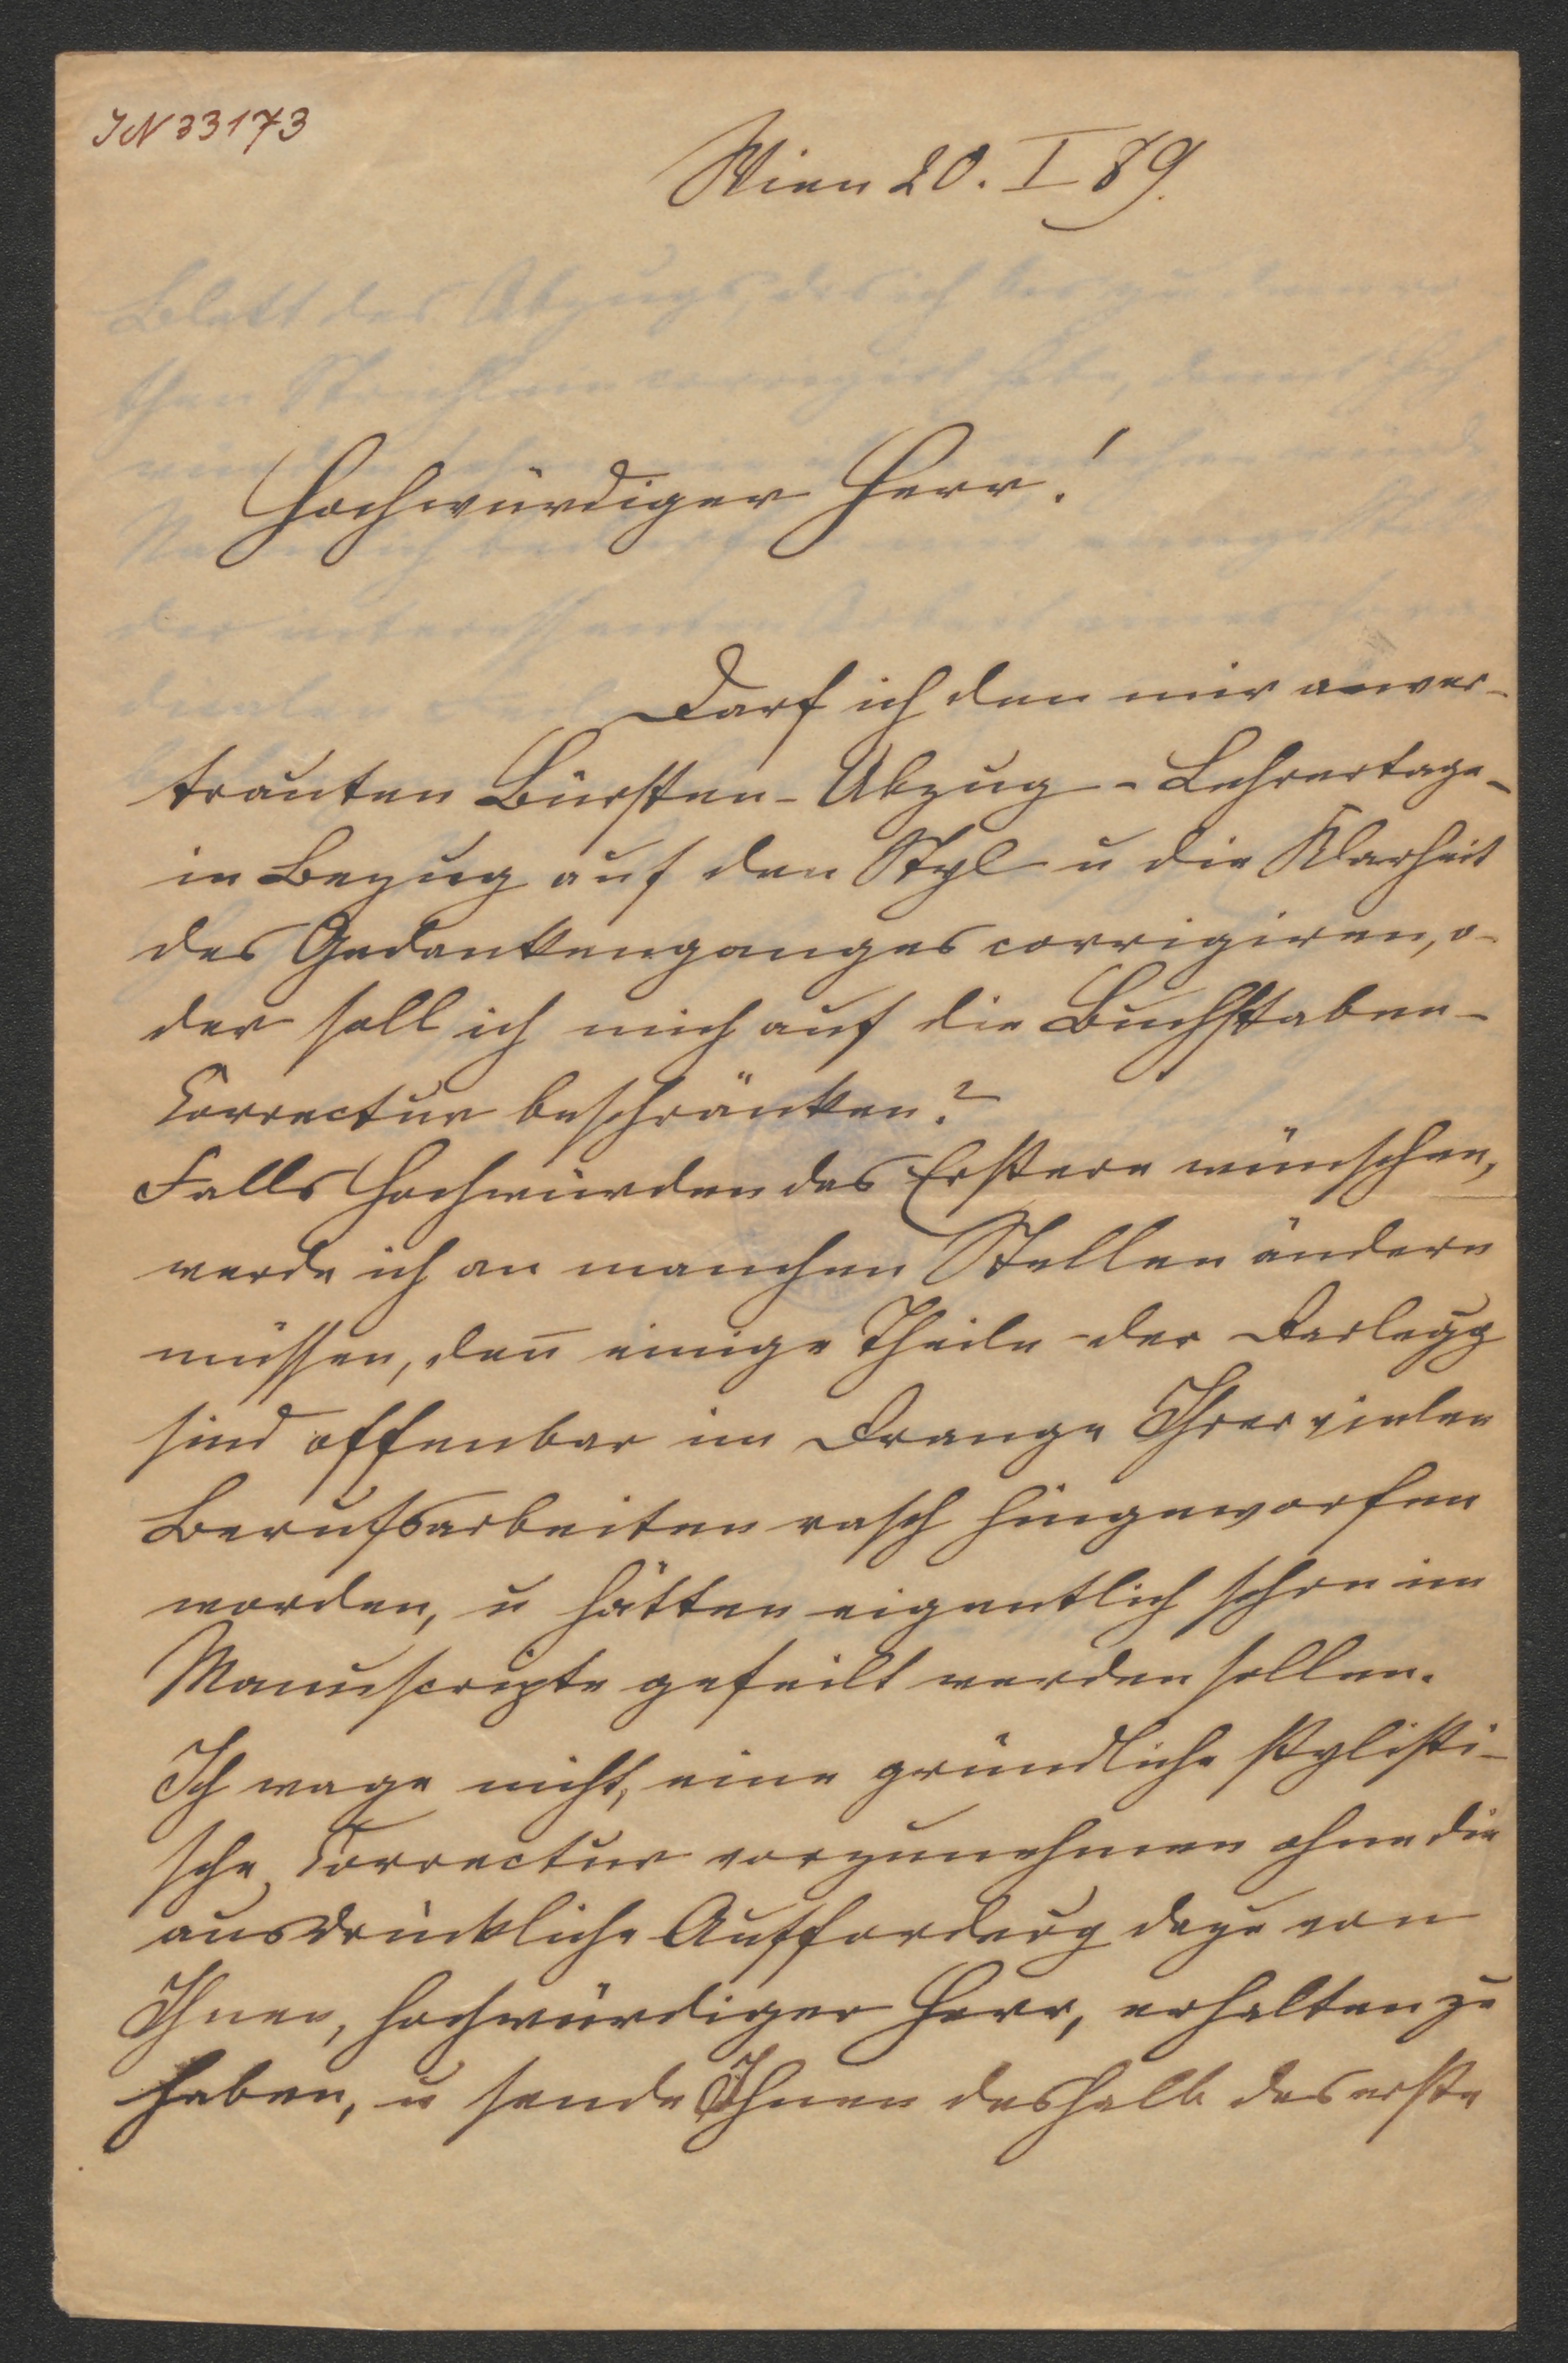 IN 33173
Wien 20. I 89.
Hochwürdiger Herr!
Darf ich den mir anver-
trauten Bürsten-Abzug - Lehrertage -
in Bezug auf den Styl u die Klarheit
des Gedankenganges corrigiren, o-
der soll ich mich auf die Buchstaben-
Correctur beschränken?
Falls Hochwürden das Erstere wünschen,
werde ich an manchen Stellen ändern
müssen, den̄ einige Theile der Darlegg
sind offenbar im Drange Ihrer vielen
Berufsarbeiten rasch hingeworfen
worden, u hätten eigentlich schon im
Manuscripte gefeilt werden sollen.
Ich wage nicht, eine gründliche stylisti-
sche Correctur vorzunehmen ohne die
ausdrückliche Aufforderug dazu von
Ihnen, hochwürdiger Herr, erhalten zu
haben, u sende Ihnen deshalb das erste